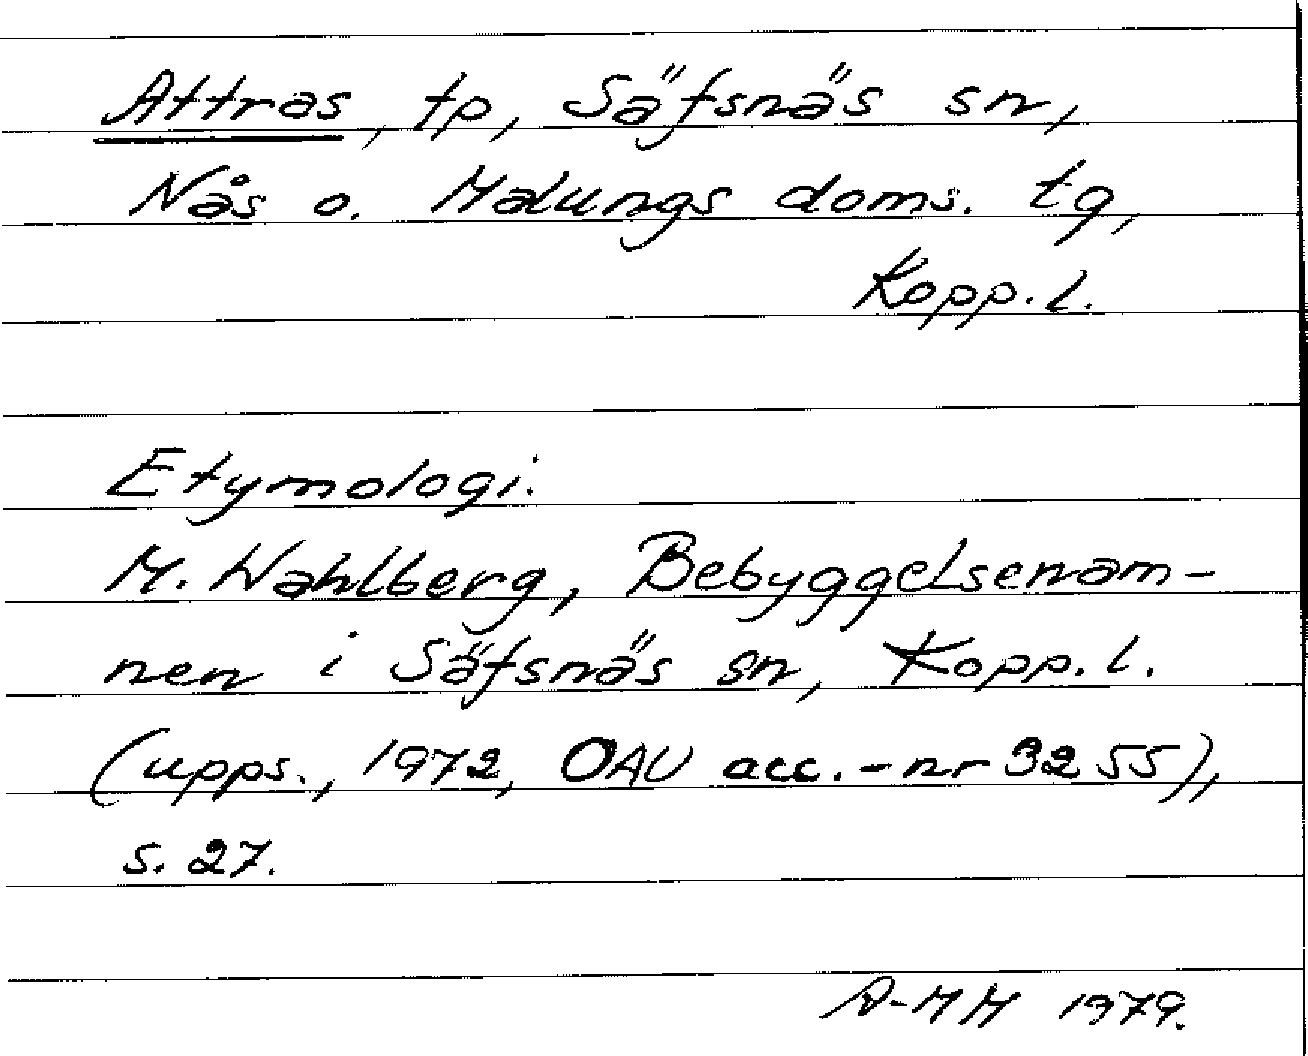 Attras, tp, Säfsnäs sn,
Nås o. Malungs doms. tg,
Kopp. l.
Etymologi:
M. Wahlberg, Bebyggelsenam-
nen i Säfsnäs sn, Kopp. l.
(upps., 1972, OAU acc.-nr 3255),
s. 27.
A-MH 1979.